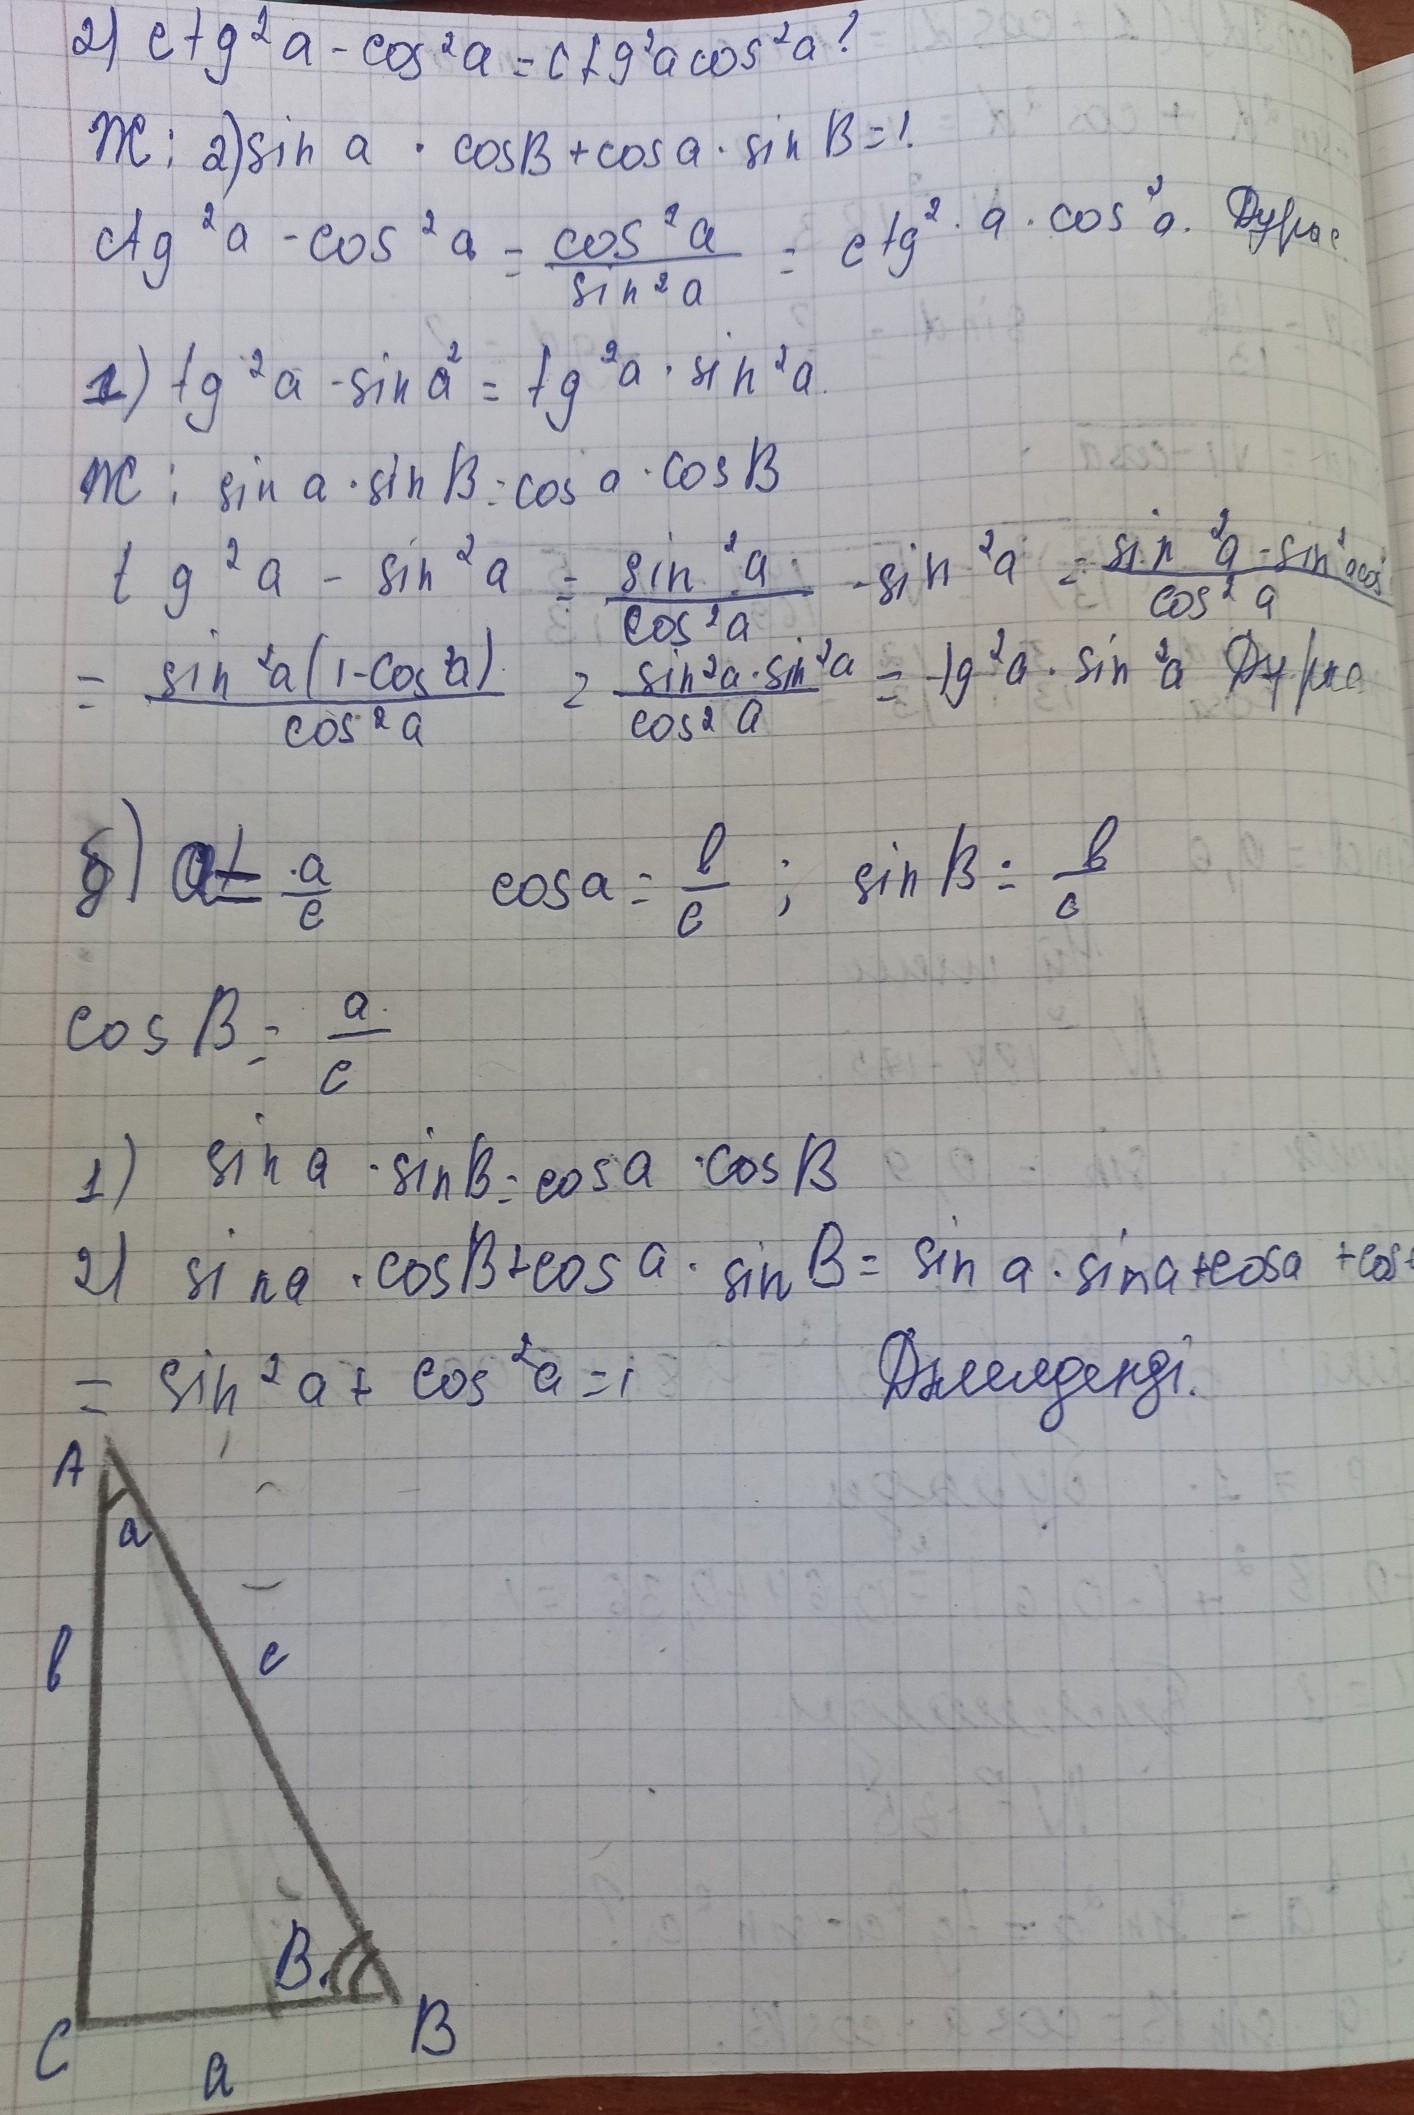 2) ctg²a - cos²a = ctg²a cos²a?
Ж: 2) sin a · cosB + cosa · sin B = 1.
ctg²a - cos²a = cos²a / sin²a = ctg² · a · cos²a. Дұрыс
1) tg²a - sin a² = tg²a · sin²a.
Ж: sin a · sin B = cos a · cosB
tg²a - sin²a = sin²a / cos²a - sin²a = sin²a - sin²a cos² / cos²a
= sin²a (1 - cos²a) / cos²a = sin²a · sin²a / cos²a = tg²a · sin²a Дұрыс
б) a/c cosa = b/c ; sin B = b/c
cos B = a/c
1) sin a · sin B = cos a · cos B
2) sin a · cosB + cos a · sin B = sin a · sin a + cosa + cos
= sin²a + cos²a = 1 Дәлелденді.
A
a
b
c
B
C
B
a